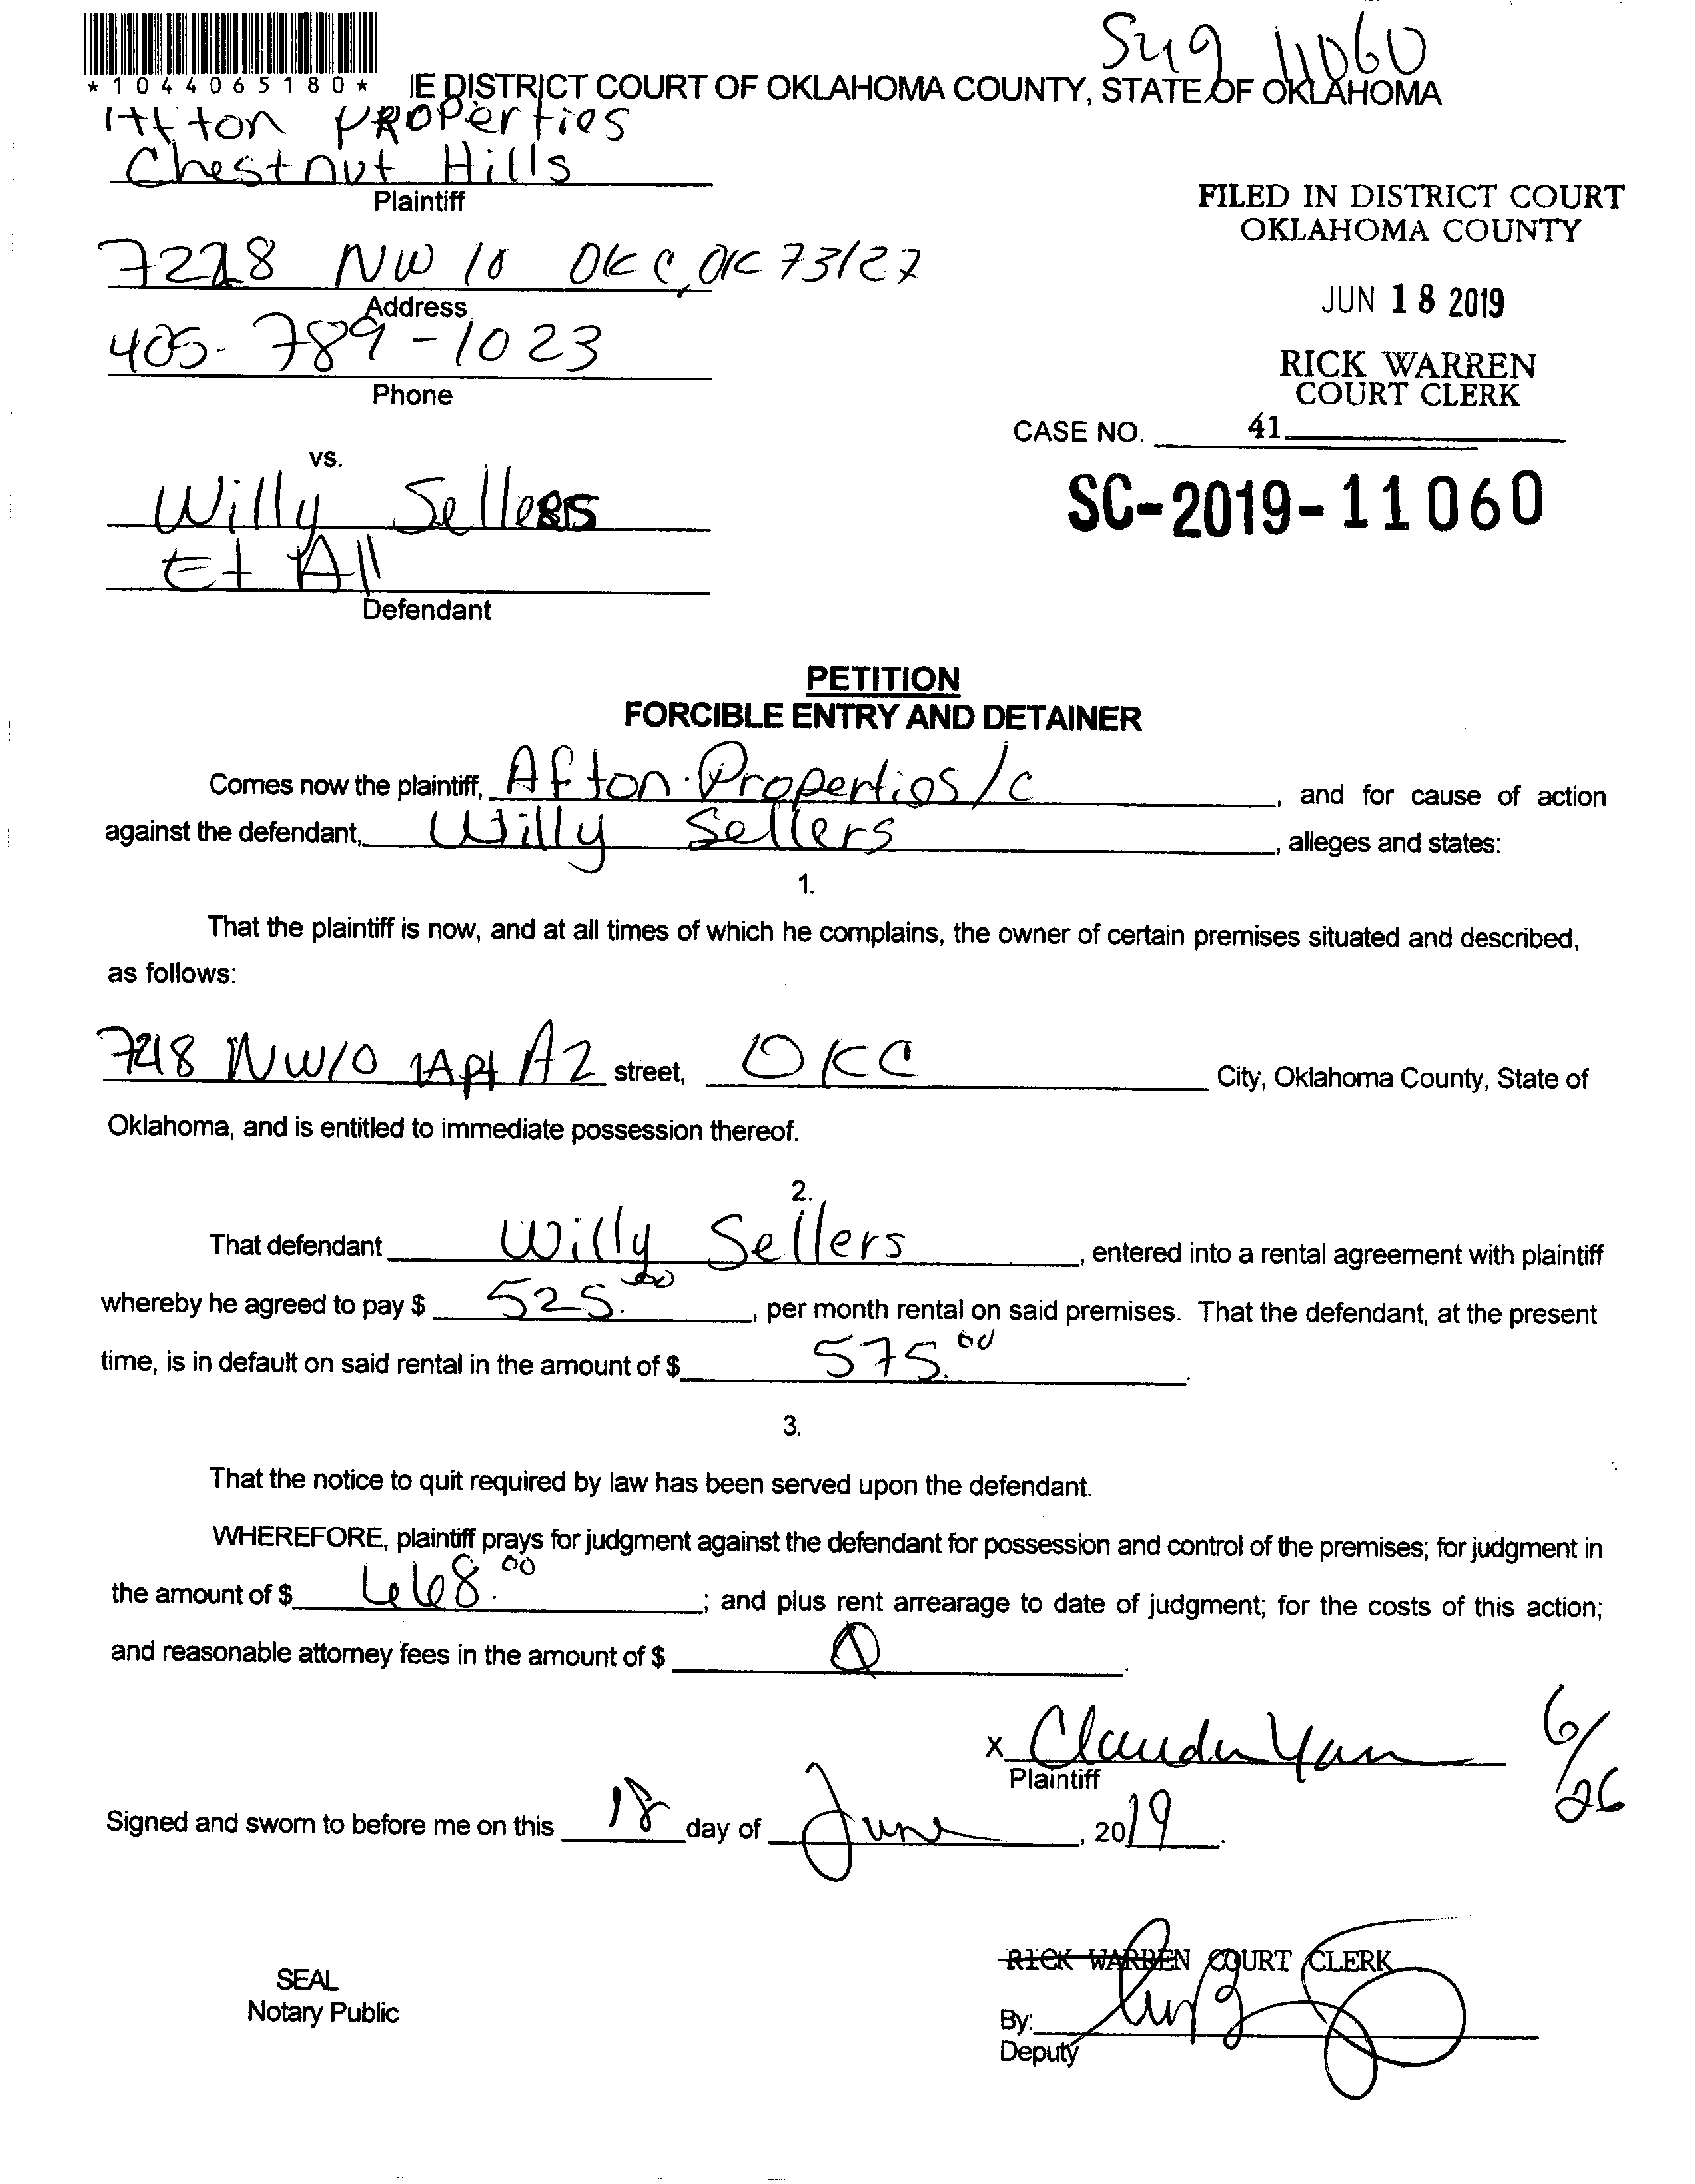 *1044065180*
IE DISTRICT COURT OF OKLAHOMA COUNTY, STATE OF OKLAHOMA
11060
Afton Properties
Chestnut Hills
Plaintiff
FILED IN DISTRICT COURT
OKLAHOMA COUNTY
NW 10 OKC, OK 73127
Address
JUN 18 2019
405-789-1023
Phone
RICK WARREN
COURT CLERK
CASE NO. 41
vs.
Willy Sellers
SC-2019-11060
Et All
Defendant
PETITION
FORCIBLE ENTRY AND DETAINER
Comes now the plaintiff, Afton Properties/c, and for cause of action
against the defendant, Willy Sellers, alleges and states:
1.
That the plaintiff is now, and at all times of which he complains, the owner of certain premises situated and described,
as follows:
NW10 Apt A2 street, OKC City, Oklahoma County, State of
Oklahoma, and is entitled to immediate possession thereof.
2.
That defendant Willy Sellers, entered into a rental agreement with plaintiff
whereby he agreed to pay $ 525.00, per month rental on said premises. That the defendant, at the present
time, is in default on said rental in the amount of $ 575.00.
3.
That the notice to quit required by law has been served upon the defendant.
WHEREFORE, plaintiff prays for judgment against the defendant for possession and control of the premises; for judgment in
the amount of $ 668.00; and plus rent arrearage to date of judgment; for the costs of this action;
and reasonable attorney fees in the amount of $
x
6/26
Plaintiff
Signed and sworn to before me on this 18 day of June, 2019.
RICK WARREN COURT CLERK
SEAL
Notary Public
By:
Deputy